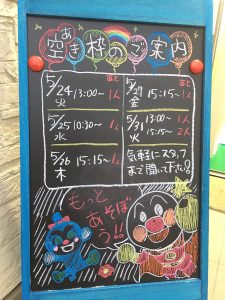 空き枠のご案内
あ
5/24 13:00〜 あと
火 1人
5/25 10:30〜 1人
水
5/26 15:15〜 1人
木
5/27 15:15〜 あと
金 1人
5/31 13:00〜 1人
火 15:15〜 2人
気軽にスタッフ
まで聞いて下さい!
もっと
あそぼ
う!!